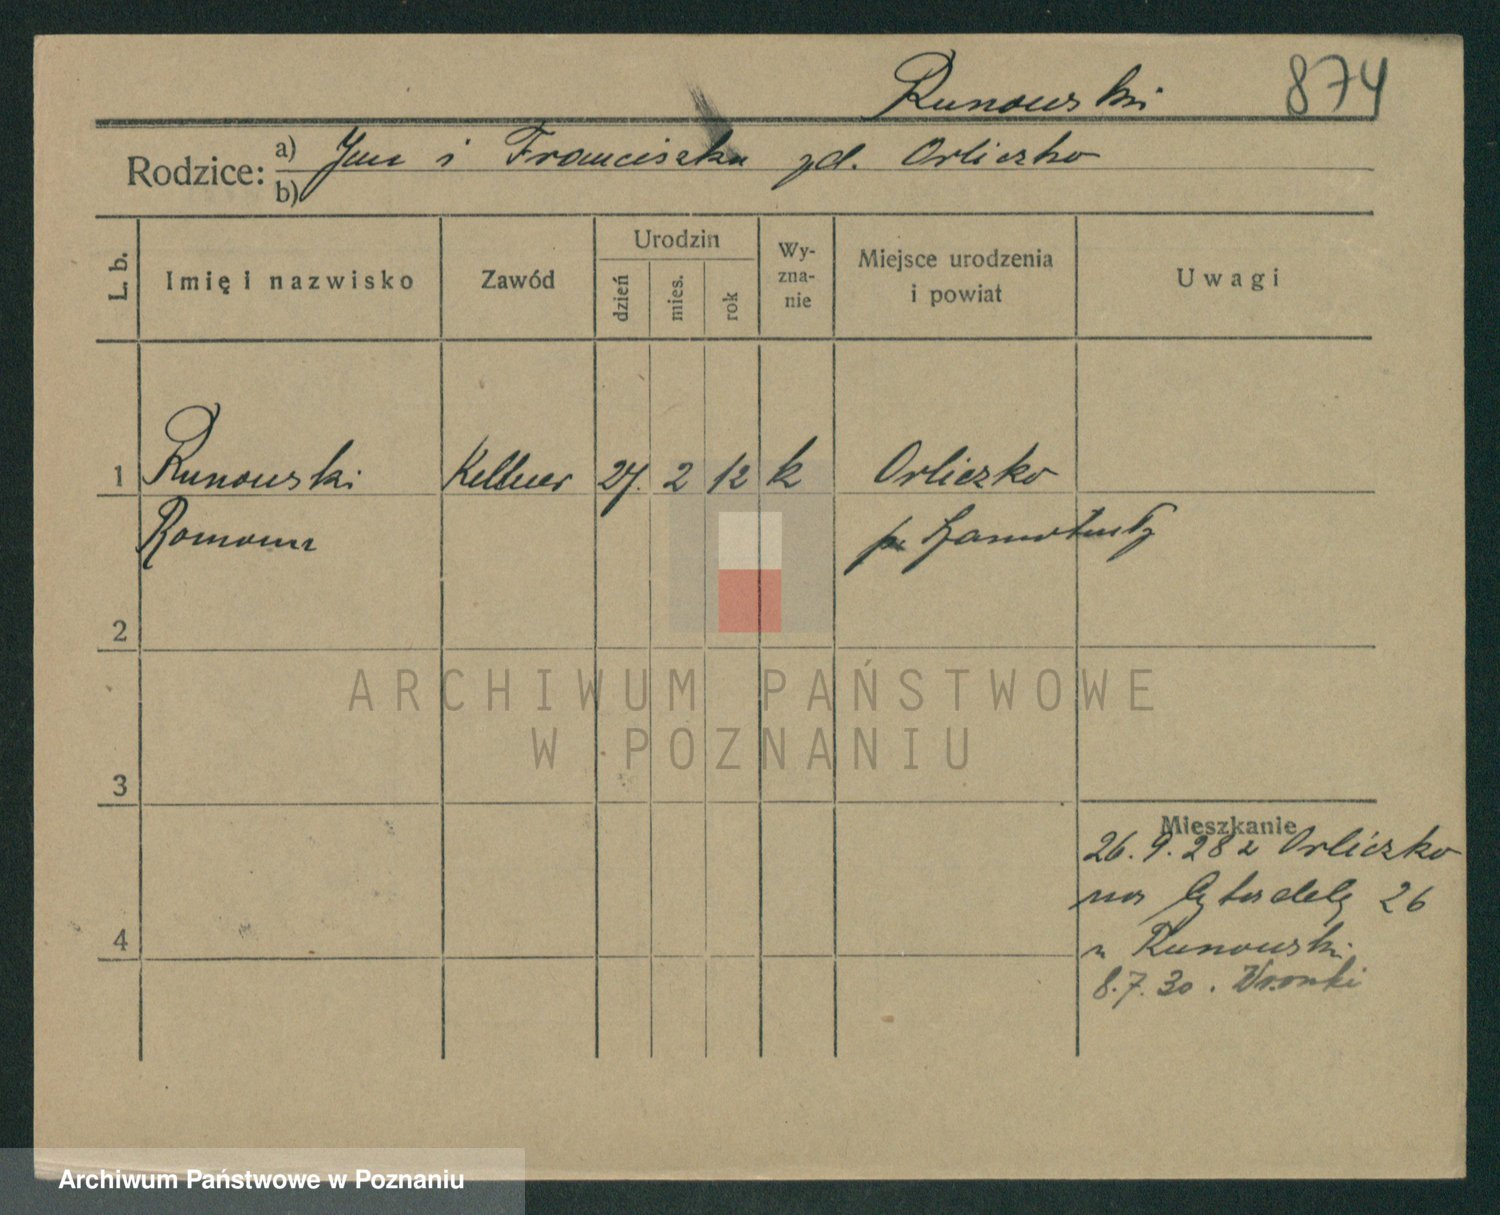 Runowski 874
Rodzice: a) Jan i Franciszka zd. Orliczko
b)
L. b. Imię i nazwisko Zawód Urodzin dzień mies. rok Wy-zna-nie Miejsce urodzenia i powiat Uwagi
1 Runowski Kellner 27. 2 12 k Orliczko
Roman p. Szamotuły
2
ARCHIWUM PAŃSTWOWE
W POZNANIU
3
Mieszkanie
26. 9. 28 z Orliczko
na Cytadelę 26
u Runowski
4
8. 7. 30. Wronki
Archiwum Państwowe w Poznaniu